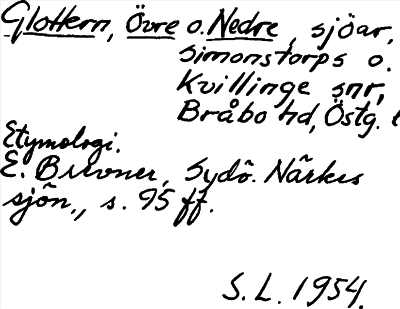 Glottern, Övre o. Nedre, sjöar,
Simonstorps o.
Kvillinge snr,
Bråbo hd, Östg. l
Etymologi.
E. Brevner, Sydö. Närkes
sjön., s. 95 ff.
S.L. 1954.